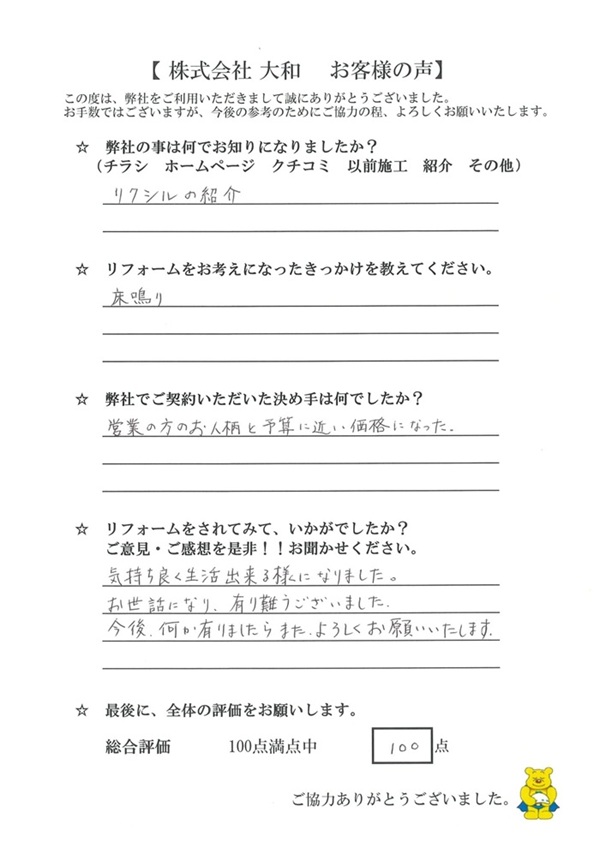 【 株式会社 大和　お客様の声】
この度は、弊社をご利用いただきまして誠にありがとうございました。
お手数ではございますが、今後の参考のためにご協力の程、よろしくお願いいたします。
☆　弊社の事は何でお知りになりましたか？
（チラシ　ホームページ　クチコミ　以前施工　紹介　その他）
リクシルの紹介
☆　リフォームをお考えになったきっかけを教えてください。
床鳴り
☆　弊社でご契約いただいた決め手は何でしたか？
営業の方のお人柄と予算に近い価格になった.
☆　リフォームをされてみて、いかがでしたか？
ご意見・ご感想を是非！！お聞かせください。
気持ち良く生活出来る様になりました。
お世話になり、有り難うございました.
今後、何か有りましたらまた、よろしくお願いいたします.
☆　最後に、全体の評価をお願いします。
総合評価　100点満点中　100　点
ご協力ありがとうございました。